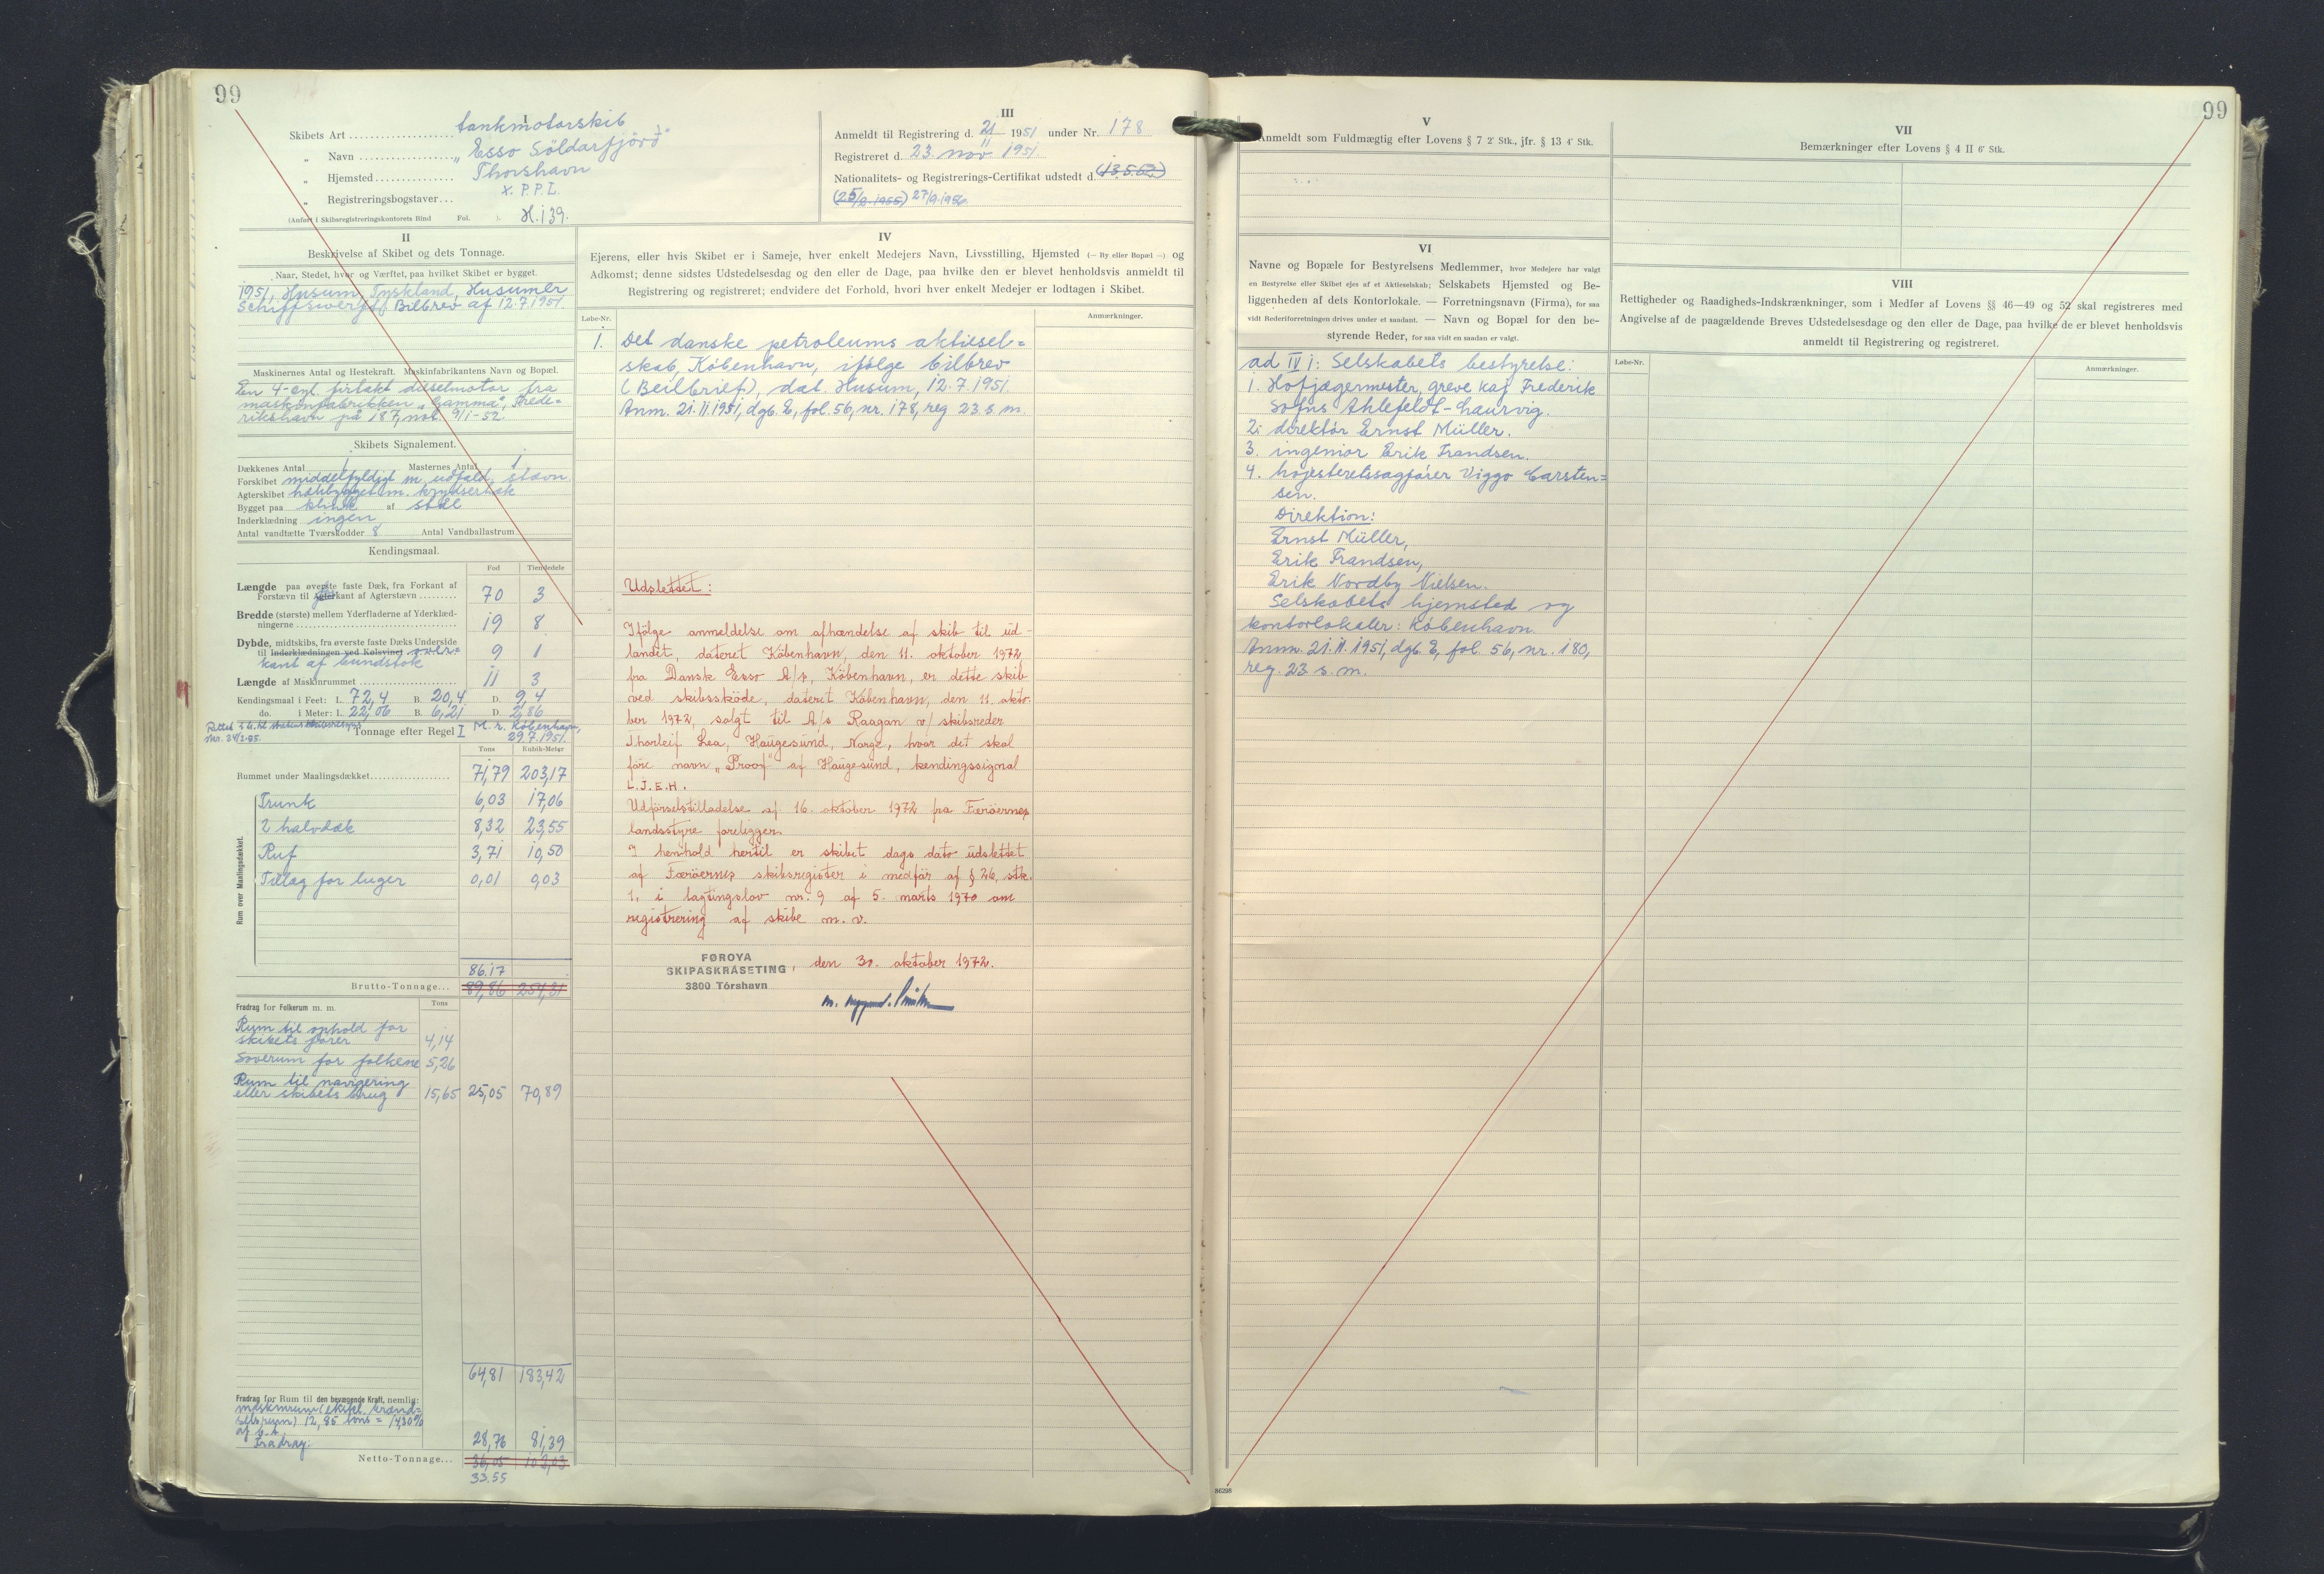 99
I
Skibets Art tankmotorskib
„ Navn „Esso Söldarfjörd"
„ Hjemsted Thorshavn
„ Registreringsbogstaver X.P.P.I.
(Anført i Skibsregistreringskontorets Bind Fol. ). H.139.
III
Anmeldt til Registrering d. 21/11 1951 under Nr. 178
Registreret d. 23. nov. 1951.
Nationalitets- og Registrerings-Certifikat udstedt d.
27/9.1956.
II
Beskrivelse af Skibet og dets Tonnage.
Naar, Stedet, hvor og Værftet, paa hvilket Skibet er bygget.
1951, Husum, Tyskland, Husumer
Schiffswerft, Bilbrev af 12.7.1951.
Maskinernes Antal og Hestekraft. Maskinfabrikantens Navn og Bopæl.
En 4-cyl. firtakt dieselmotor fra
maskinfabrikken „Gamma", Frede=
rikshavn på 187,
Skibets Signalement.
Dækkenes Antal 1 Masternes Antal 1
Forskibet middelfyldigt m. udfald. stævn
Agterskibet hækbygget m. krydserhæk
Bygget paa klink af stål
Inderklædning ingen
Antal vandtætte Tværskodder 8 Antal Vandballastrum
Kendingsmaal.
Fod Tiendedele
Længde paa øverste faste Dæk, fra Forkant af
Forstævn til Agterkant af Agterstævn 70 3
Bredde (største) mellem Yderfladerne af Yderklæd-
ningerne 19 8
Dybde, midtskibs, fra øverste faste Dæks Underside
til Inderklædningen ved Kølsvinet over=
kant af bundstok 9 1
Længde af Maskinrummet 11 3
Kendingsmaal i Feet: L. 72,4 B. 20,4 D. 9,4
do. i Meter: L. 22,06 B. 6,21 D. 2,86
Tonnage efter Regel I M.r. København,
29.7.1951.
Tons Kubik-Meter
Rummet under Maalingsdækket 71,79 203,17
Rum over Maalingsdækket.
Trunk 6,03 17,06
2 halvdæk 8,32 23,55
Ruf 3,71 10,50
Tillæg for luger 0,01 0,03
86.17
Brutto-Tonnage... 89,86 254,31
Fradrag for Folkerum m. m. Tons
Rum til ophold for
skibets fører 4,14
Soverum for folkene 5,26
Rum til navigering
eller skibets brug 15,65 25,05 70,89
64,81 183,42
Fradrag for Rum til den bevægende Kraft, nemlig:
maskinrum (ekskl. brænd=
selsrum) 12,85 tons = 14,30%
af b.t.
Fradrag: 28,76 81,39
Netto-Tonnage... 36,05 102,03
33.55
IV
Ejerens, eller hvis Skibet er i Sameje, hver enkelt Medejers Navn, Livsstilling, Hjemsted (— By eller Bopæl —) og
Adkomst; denne sidstes Udstedelsesdag og den eller de Dage, paa hvilke den er blevet henholdsvis anmeldt til
Registrering og registreret; endvidere det Forhold, hvori hver enkelt Medejer er lodtagen i Skibet.
Løbe-Nr. Anmærkninger.
1. Det danske petroleums aktiesel=
skab, København, ifølge bilbrev
(Beilbrief), dat. Husum, 12.7.1951.
Anm. 21.11.1951, dgb. E, fol. 56, nr. 178, reg 23. s. m.
Udslettet:
Ifölge anmeldelse om afhændelse af skib til ud-
landet, dateret Köbenhavn, den 11. oktober 1972
fra Dansk Esso A/s, Köbenhavn, er dette skib
ved skibsskøde, dateret Köbenhavn, den 11. okto-
ber 1972, solgt til A/s Raagan v/ skibsreder
Thorleif Lea, Haugesund, Norge, hvor det skal
føre navn „Proof" af Haugesund, kendingssignal
L.J.E.H.
Udførselstilladelse af 16. oktober 1972 fra Færöernes
landsstyre foreligger.
I henhold hertil er skibet dags dato udslettet
af Færöernes skibsregister i medfør af § 26, stk.
1, i lagtingslov nr. 9 af 5. marts 1970 om
registrering af skibe m. v.
FØROYA
SKIPASKRÁSETING, den 30. oktober 1972.
3800 Tórshavn
V
Anmeldt som Fuldmægtig efter Lovens § 7 2' Stk., jfr. § 13 4' Stk.
VI
Navne og Bopæle for Bestyrelsens Medlemmer, hvor Medejere har valgt
en Bestyrelse eller Skibet ejes af et Aktieselskab; Selskabets Hjemsted og Be-
liggenheden af dets Kontorlokale. — Forretningsnavn (Firma), for saa
vidt Rederiforretningen drives under et saadant. — Navn og Bopæl for den be-
styrende Reder, for saa vidt en saadan er valgt.
ad IV 1: Selskabets bestyrelse:
1. Hofjægermester, greve Kaj Frederik
Sofus Ahlefeldt-Laurvig.
2. direktør Ernst Müller.
3. ingeniør Erik Frandsen.
4. højesteretssagfører Viggo Carsten=
sen.
Direktion:
Ernst Müller,
Erik Frandsen,
Erik Nordby Nielsen.
Selskabets hjemsted og
kontorlokaler: København.
Anm. 21.11.1951, dgb. E, fol. 56, nr. 180,
reg. 23 s. m.
99
VII
Bemærkninger efter Lovens § 4 II 6' Stk.
VIII
Rettigheder og Raadigheds-Indskrænkninger, som i Medfør af Lovens §§ 46—49 og 52 skal registreres med
Angivelse af de paagældende Breves Udstedelsesdage og den eller de Dage, paa hvilke de er blevet henholdsvis
anmeldt til Registrering og registreret.
Løbe-Nr. Anmærkninger.
86298